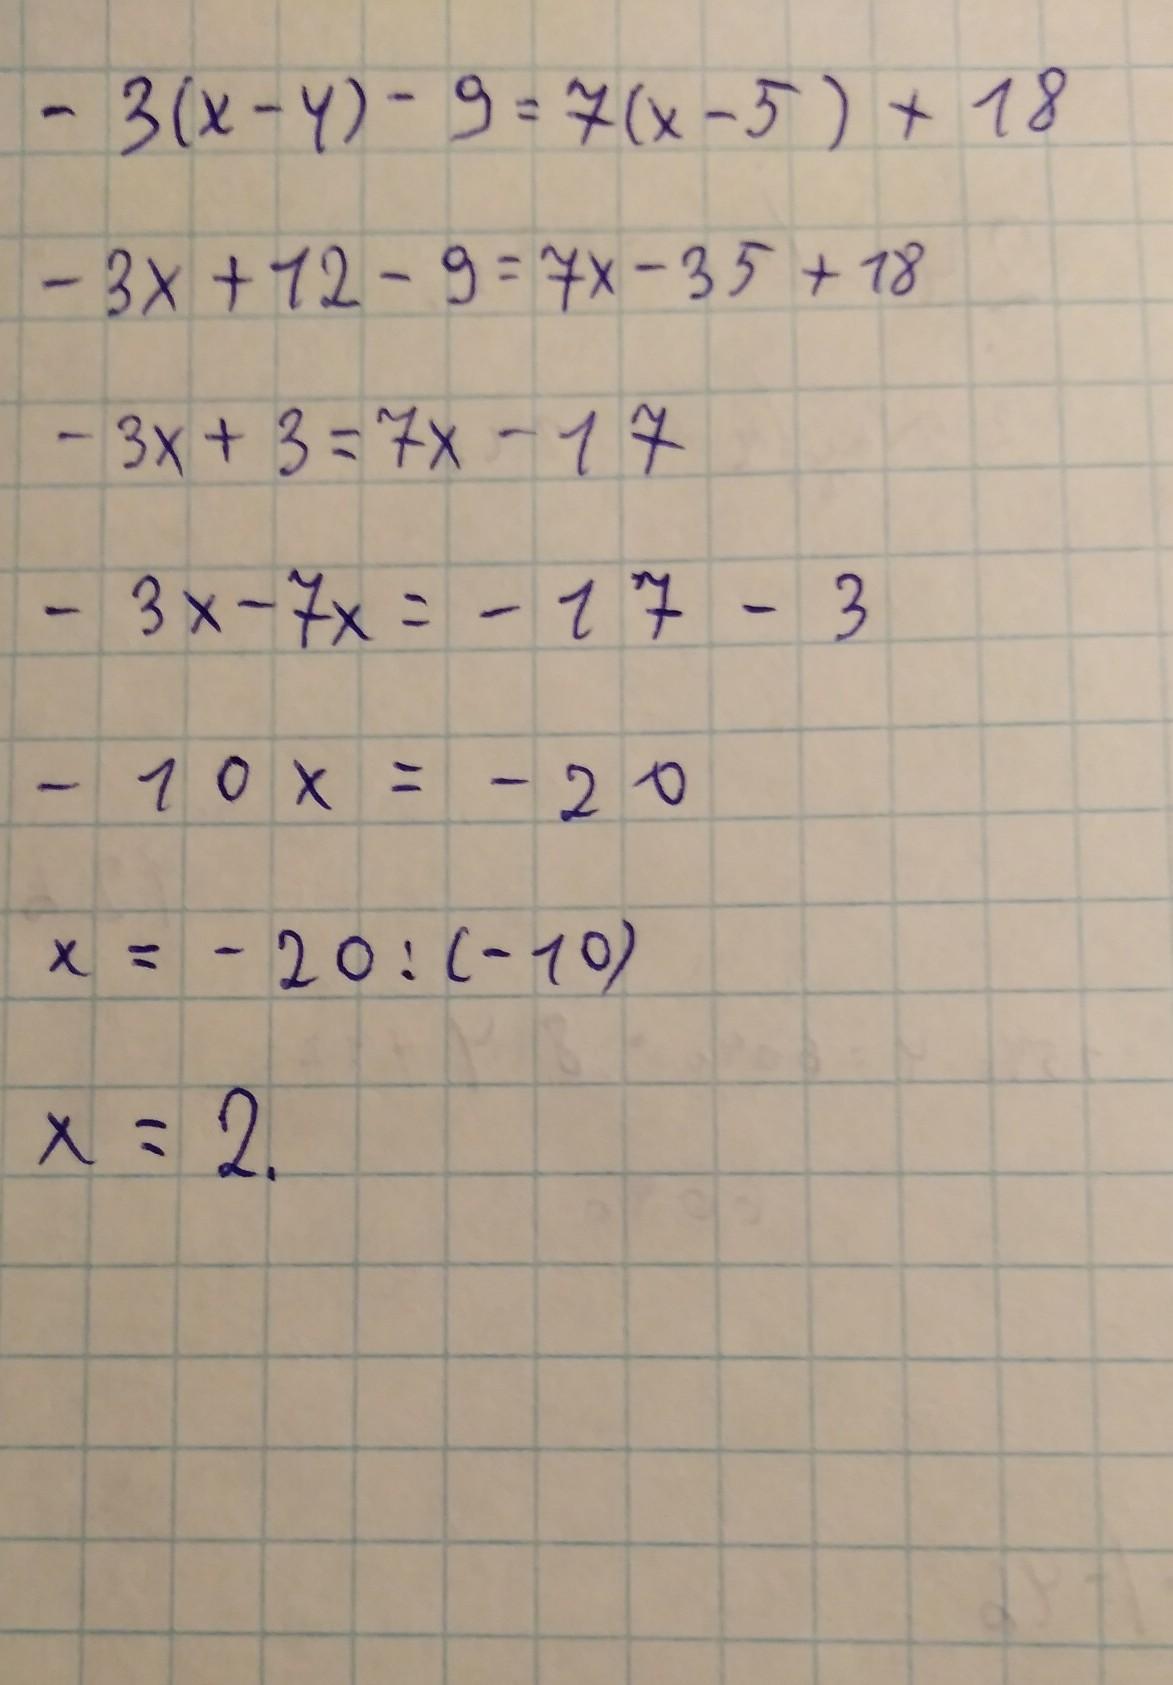 - 3(x-4) - 9 = 7(x-5) + 18
- 3x + 12 - 9 = 7x - 35 + 18
- 3x + 3 = 7x - 17
- 3x - 7x = - 17 - 3
- 10x = - 20
x = - 20 : (-10)
x = 2.